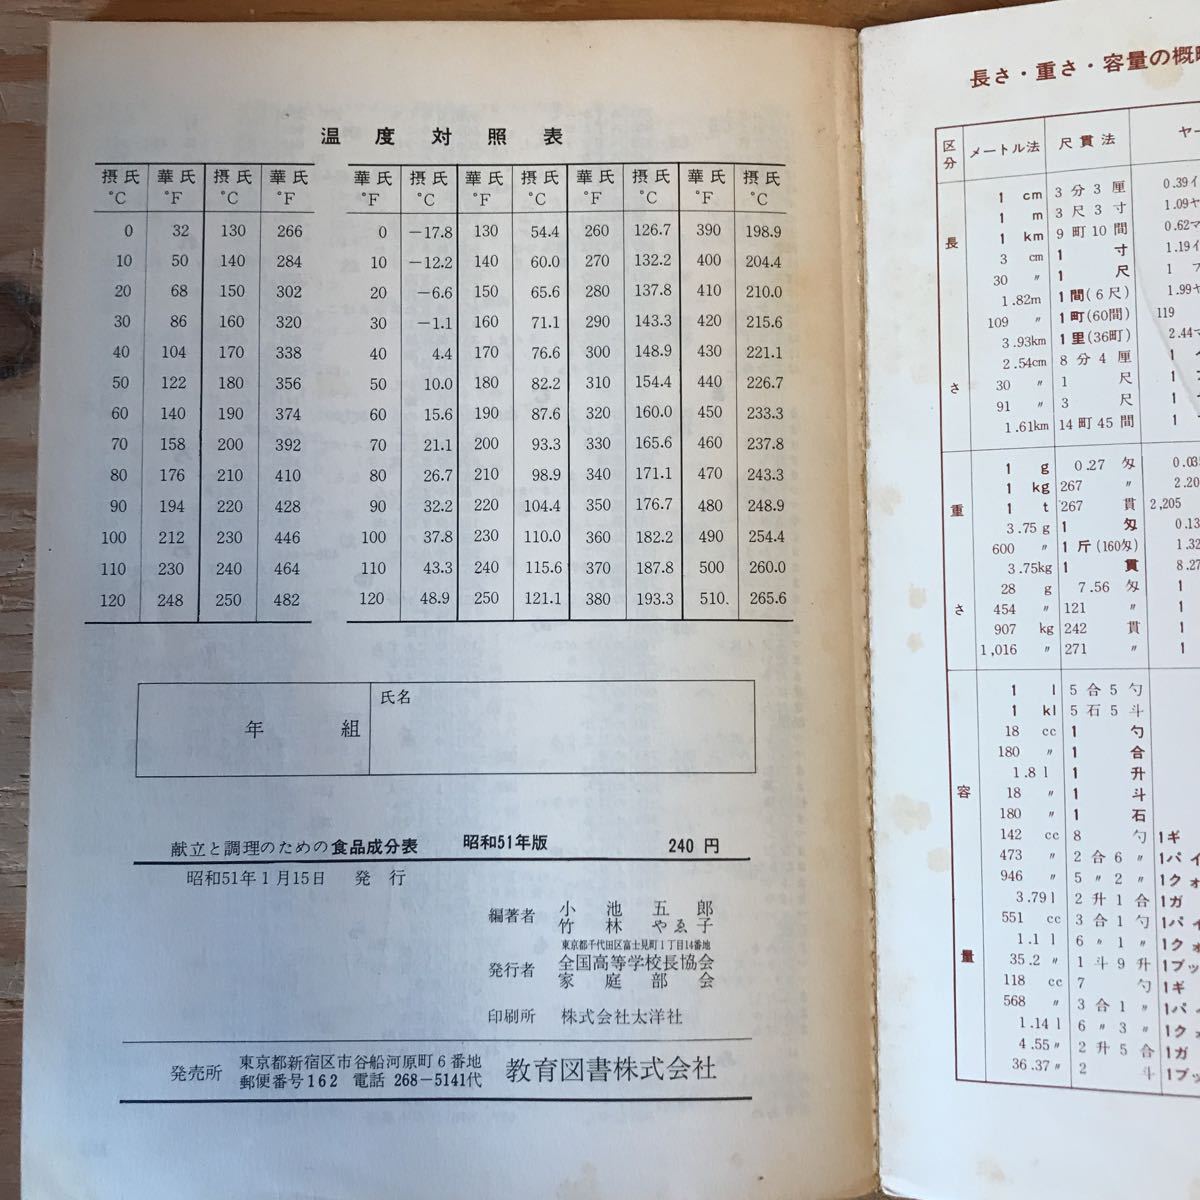 温度対照表
摂氏 華氏 摂氏 華氏 華氏 摂氏 華氏 摂氏 華氏 摂氏 華氏 摂氏
°C °F °C °F °F °C °F °C °F °C °F °C
0 32 130 266 0 −17.8 130 54.4 260 126.7 390 198.9
10 50 140 284 10 −12.2 140 60.0 270 132.2 400 204.4
20 68 150 302 20 −6.6 150 65.6 280 137.8 410 210.0
30 86 160 320 30 −1.1 160 71.1 290 143.3 420 215.6
40 104 170 338 40 4.4 170 76.6 300 148.9 430 221.1
50 122 180 356 50 10.0 180 82.2 310 154.4 440 226.7
60 140 190 374 60 15.6 190 87.6 320 160.0 450 233.3
70 158 200 392 70 21.1 200 93.3 330 165.6 460 237.8
80 176 210 410 80 26.7 210 98.9 340 171.1 470 243.3
90 194 220 428 90 32.2 220 104.4 350 176.7 480 248.9
100 212 230 446 100 37.8 230 110.0 360 182.2 490 254.4
110 230 240 464 110 43.3 240 115.6 370 187.8 500 260.0
120 248 250 482 120 48.9 250 121.1 380 193.3 510. 265.6
年 組 氏名
献立と調理のための食品成分表 昭和51年版 240円
昭和51年1月15日 発行
編著者 小池五郎
竹林やゑ子
東京都千代田区富士見町1丁目14番地
発行者 全国高等学校長協会
家庭部会
印刷所 株式会社太洋社
発売所 東京都新宿区市谷船河原町6番地
郵便番号162 電話 268−5141代
教育図書株式会社
長さ・重さ・容量の概
区分 メートル法 尺貫法 ヤー
長さ
1 cm 3分3厘 0.39イ
1 m 3尺3寸 1.09ヤ
1 km 9町10間 0.62マ
3 cm 1 寸 1.19イ
30 〃 1 尺 1 フ
1.82m 1間(6尺) 1.99ヤ
109 〃 1町(60間) 119
3.93km 1里(36町) 2.44マ
2.54cm 8分4厘 1 イ
30 〃 1 尺 1 フ
91 〃 3 尺 1 ヤ
1.61km 14町45間 1
重さ
1 g 0.27 匁 0.035
1 kg 267 〃 2.20
1 t 267 貫 2,205
3.75 g 1 匁 0.13
600 〃 1斤(160匁) 1.32
3.75kg 1 貫 8.27
28 g 7.56 匁 1
454 〃 121 〃 1
907 kg 242 貫 1
1,016 〃 271 〃 1
容量
1 l 5合5勺
1 kl 5石5斗
18 cc 1 勺
180 〃 1 合
1.8 l 1 升
18 〃 1 斗
180 〃 1 石
142 cc 8 勺 1ギ
473 〃 2合6〃 1パイ
946 〃 5〃2〃 1クォ
3.79 l 2升1合 1ガ
551 cc 3合1勺 1パイ
1.1 l 6〃1〃 1クォ
35.2 〃 1斗9升 1ブッ
118 cc 7 勺 1ギ
568 〃 3合1〃 1パイ
1.14 l 6〃3〃 1クォ
4.55〃 2升5合 1ガ
36.37〃 2 斗 1ブッ